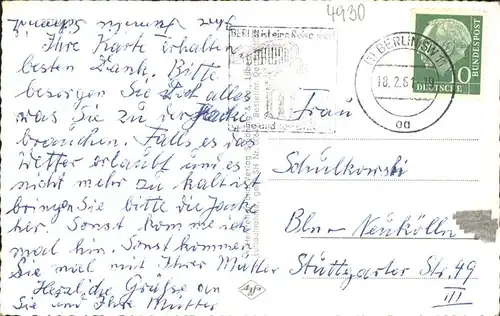 4930
Ihre Karte erhalten
besten Dank. Bitte
besorgen Sie sich alles
was Sie zu der Jacke
brauchen. Falls es das
Wetter erlaubt und es
nicht mehr zu kalt ist
bringen Sie bitte die Jacke
her. Sonst komme ich
mal hin. Sonst kommen
Sie mal mit Ihrer Mutter
Herzliche Grüße an
Sie und Ihre Mutter
BERLIN ist eine Reise wert
BERLIN SW 11
18.2.61-19
aa
DEUTSCHE BUNDESPOST
10
Frau
Schulkowski
Bln-Neukölln
Stuttgarter Str. 49
III